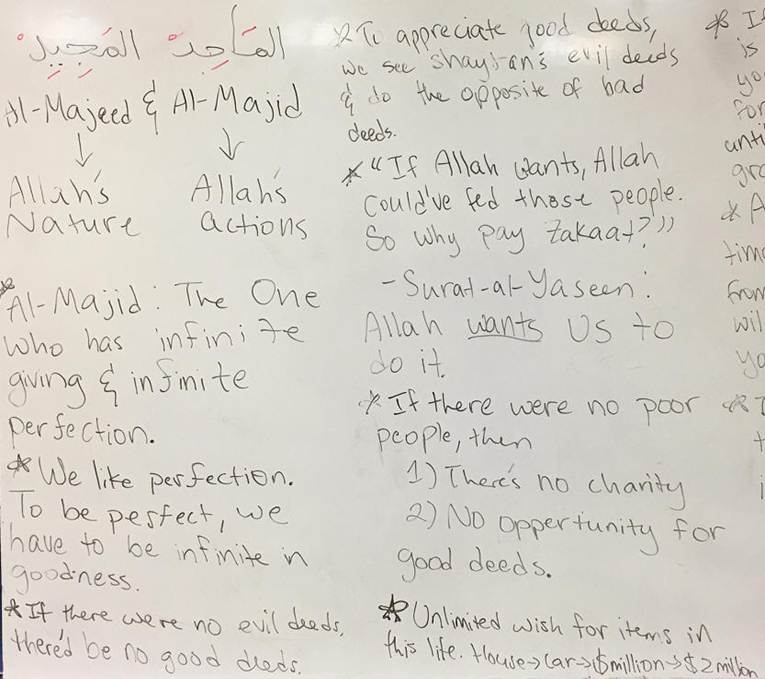 الماجدُ المَجِيدُ
Al-Majeed & Al-Majid
Allah's
Nature
Allah's
actions
* Al-Majid: The One
who has infinite
giving & infinite
perfection.
* We like perfection.
To be perfect, we
have to be infinite in
goodness.
* If there were no evil deeds,
there'd be no good deeds.
* To appreciate good deeds,
we see shaytan's evil deeds
& do the opposite of bad
deeds.
* "If Allah wants, Allah
could've fed those people.
So why pay zakaat?"
- Surat-al-Yaseen:
Allah wants us to
do it.
* If there were no poor
people, then
1) There's no charity
2) No oppertunity for
good deeds.
* Unlimited wish for items in
this life. House→Car→$million→$2million
is
for
* A